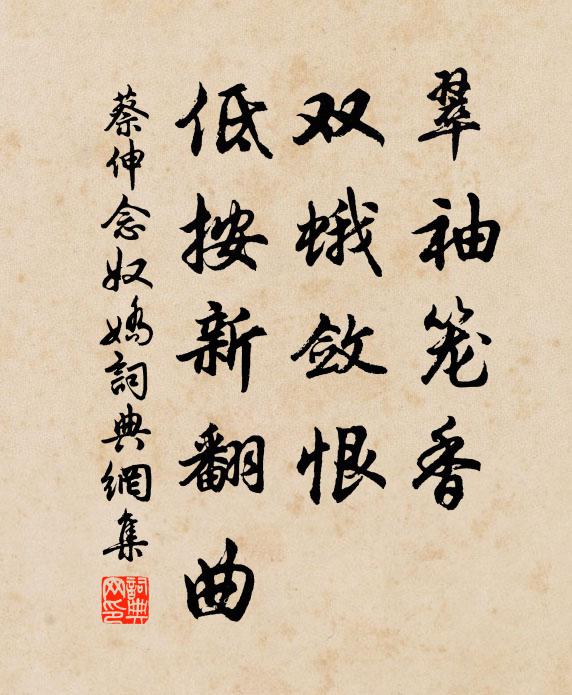 翠袖笼香
双蛾敛恨
低按新翻曲
蔡伸念奴嬌詞典網集
詞典网印